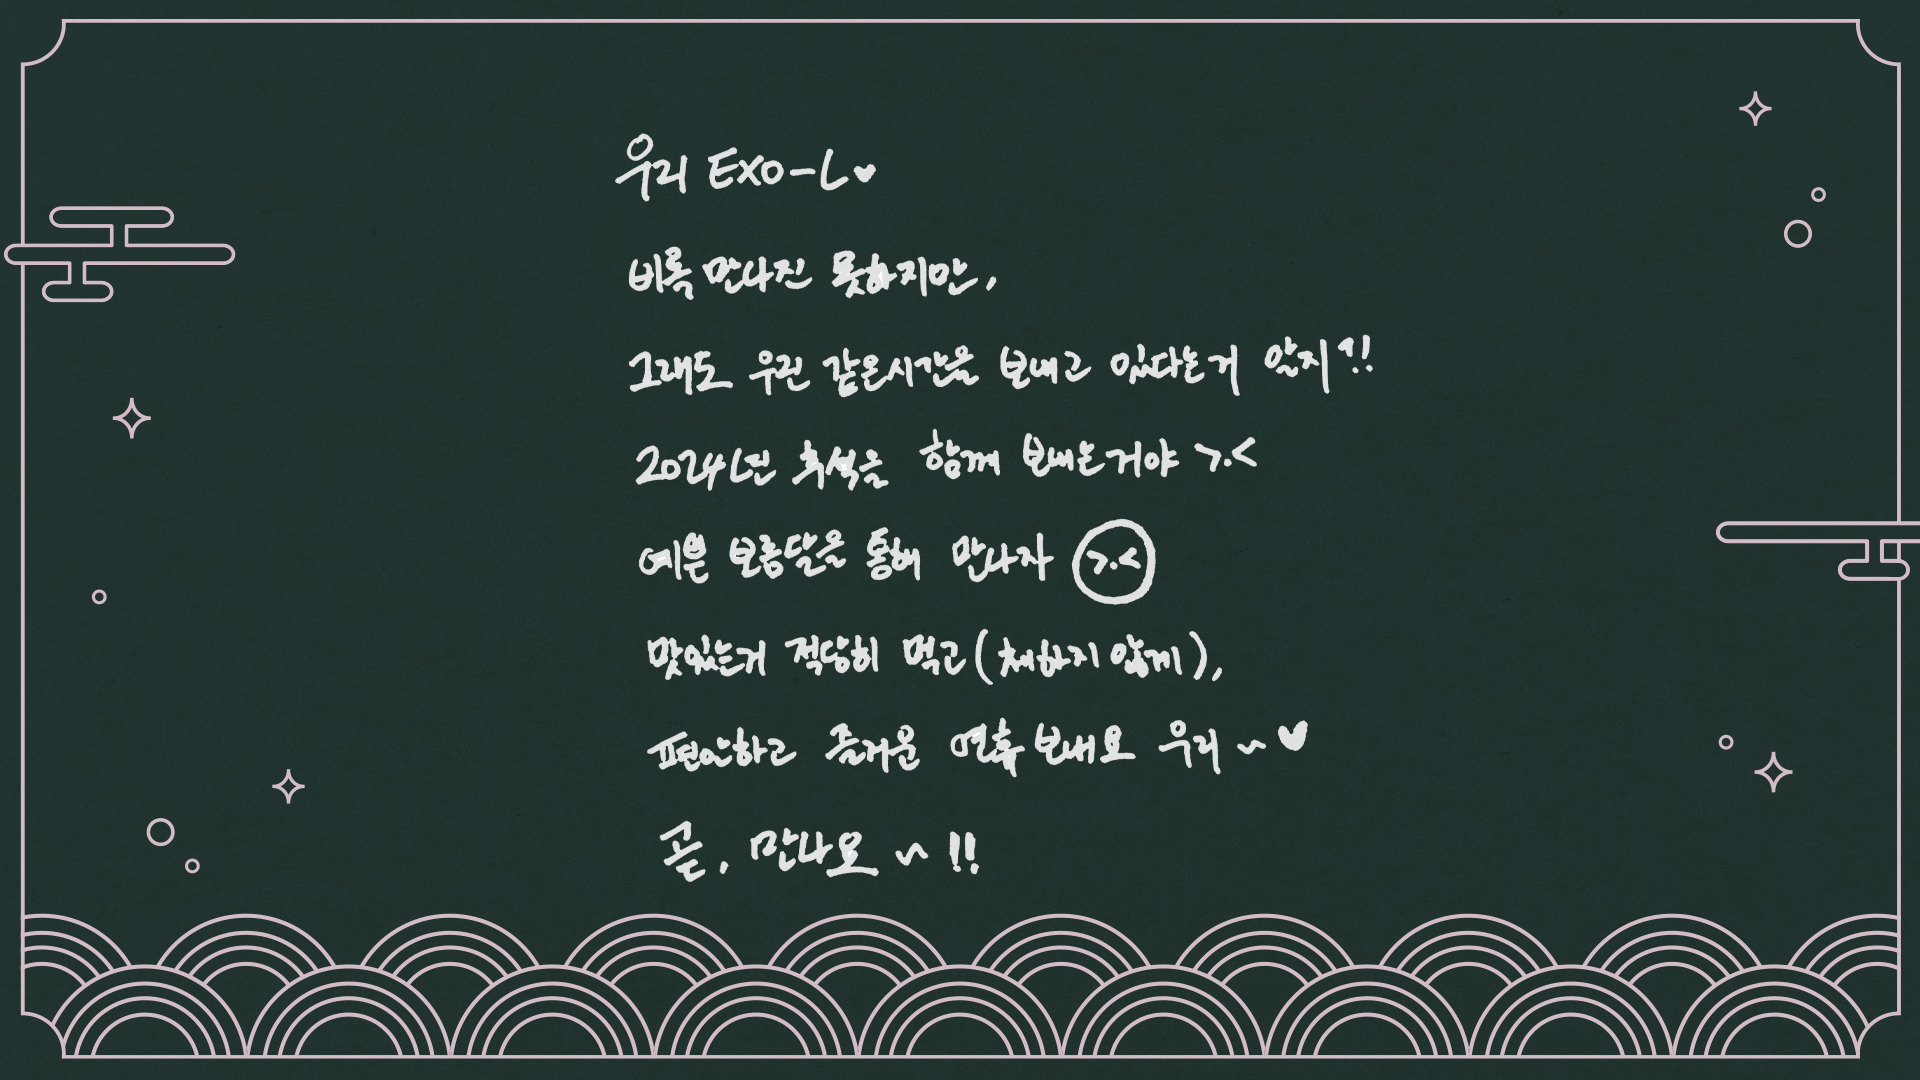 우리 EXO-L♥
비록 만나진 못하지만,
그래도 우린 같은시간을 보내고 있다는거 알지?!
2024년 추석을 함께 보내는거야 >.<
예쁜 보름달을 통해 만나자 >.<
맛있는거 적당히 먹고(체하지 않게),
편안하고 즐거운 연휴 보내요 우리~♥
곧, 만나요~!!